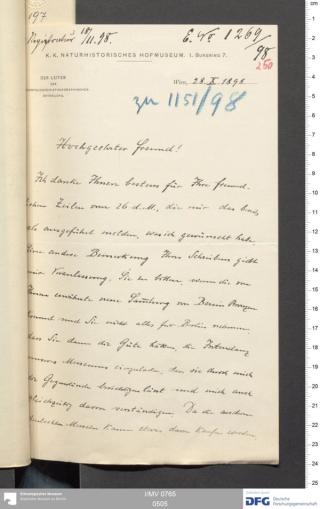 197
18/11.98.
E. No 1269/98
250
K. K. NATURHISTORISCHES HOFMUSEUM. I. BURGRING 7.
DER LEITER
DER
ANTHROPOLOGISCH-ETHNOGRAPHISCHEN
ABTHEILUNG.
Wien, 28 X 1898
zu 1151/98
Hochgeehrter Freund!
Ich danke Ihnen bestens für Ihre freund-
lichen Zeilen vom 26 d. M., die mir das
als ausgeführt melden, was ich gewünscht habe.
Eine andere Bemerkung Ihres Schreibens gibt
mir Veranlassung, Sie zu bitten, wenn die von
Ihnen erwähnte neue Sammlung von Benin
kommt und Sie nicht alles für Berlin nehmen,
dass Sie dann die Güte hätten, die Intendanz
unseres Museums einzuladen, den sie
der Gegenstände besichtigen lässt und mich auch
gleichzeitig davon verständigen. Da die anderen
deutschen Museen kaum etwas davon kaufen werden,
I/MV 0765
0505
Ethnologisches Museum
Staatliche Museen zu Berlin
DFG
Deutsche
Forschungsgemeinschaft